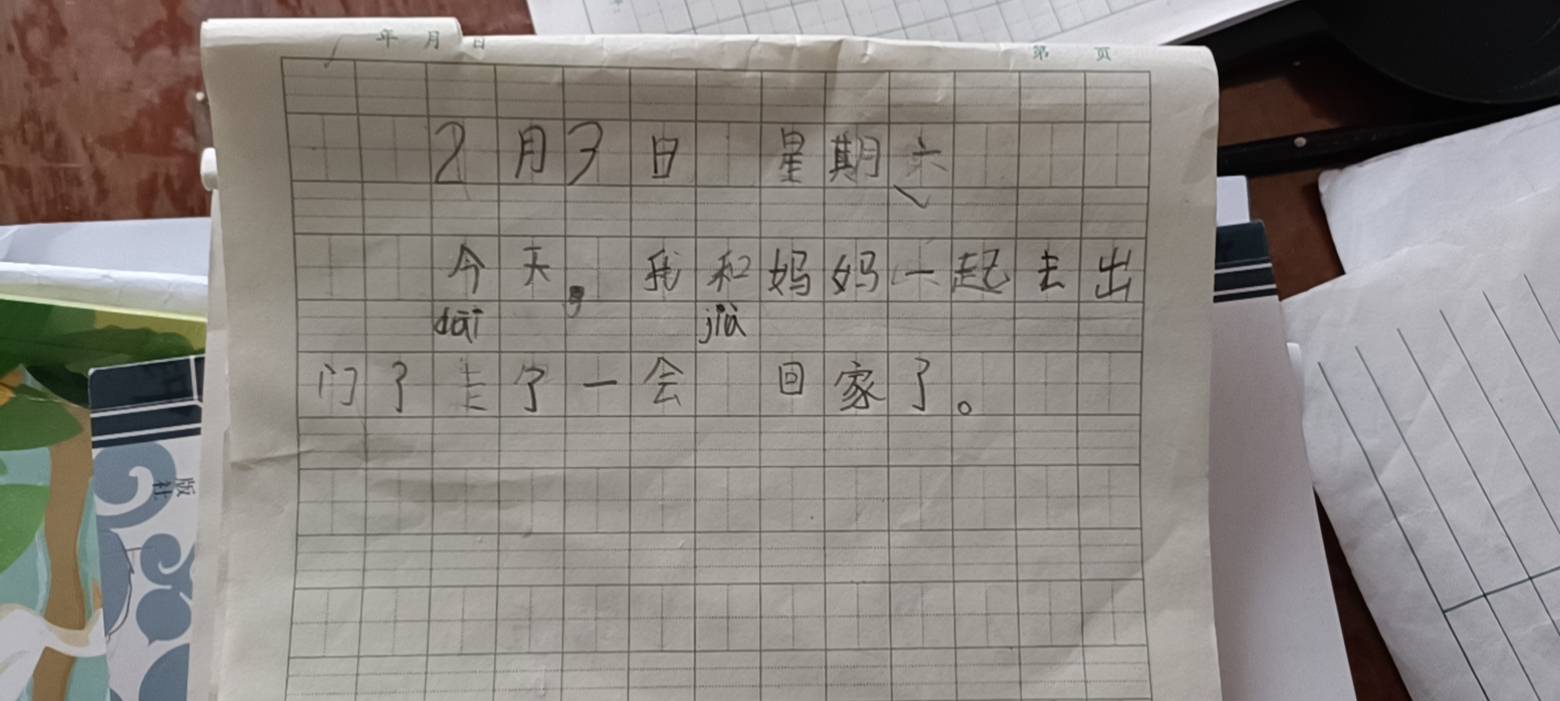 年 月 日 第 页
2月3日 星期六
今天，我和妈妈一起去出
dāi
门了 了一会 回家了。
版
社